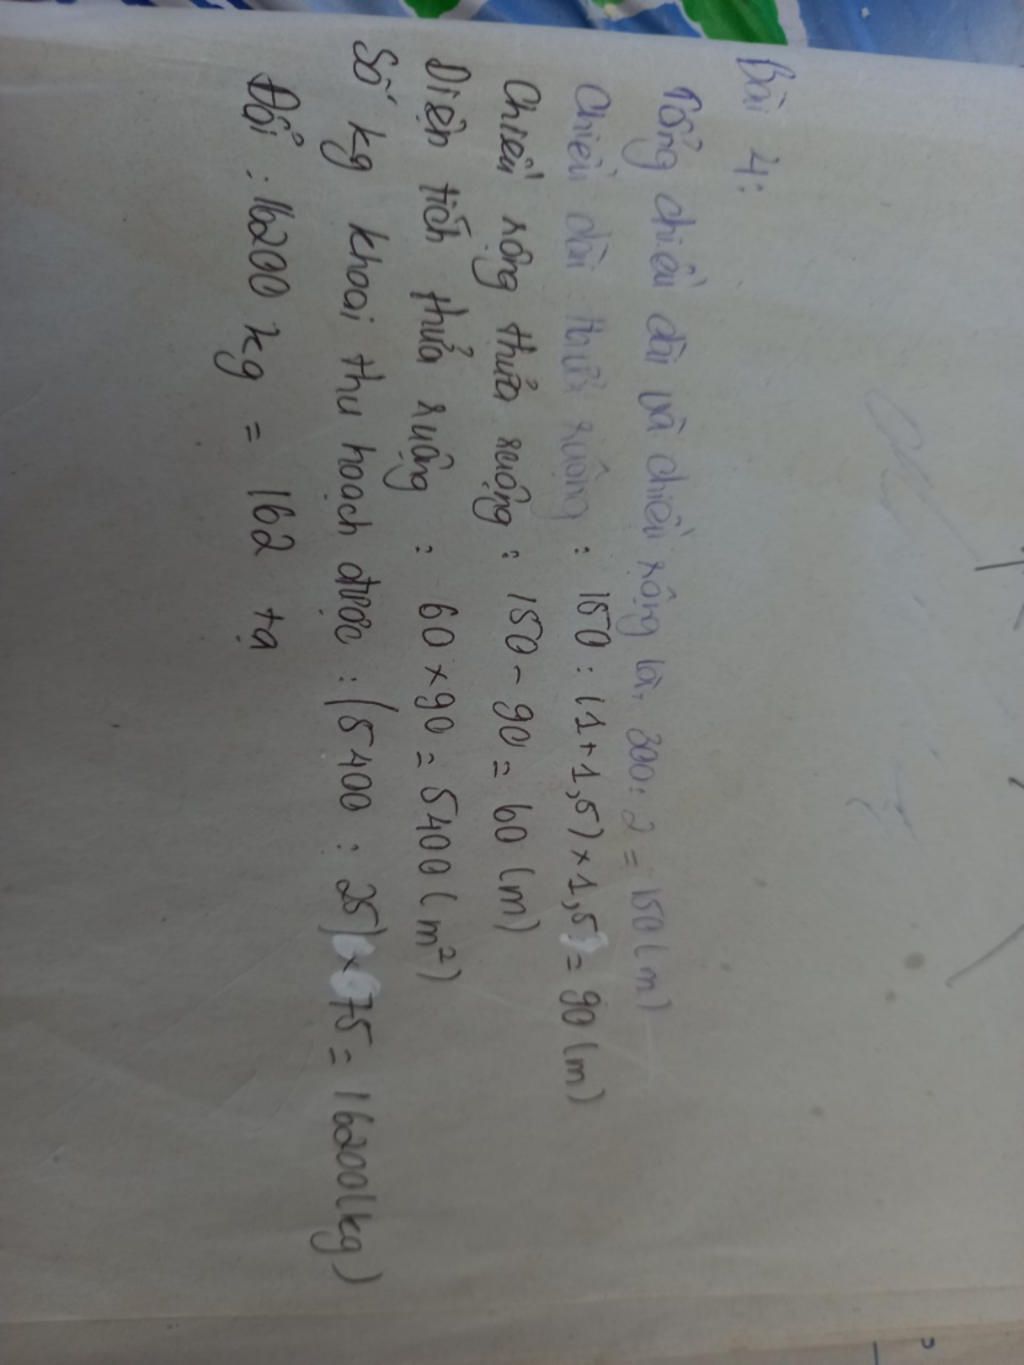 Bài 4:
Tổng chiều dài và chiều rộng là, 300: 2 = 150 (m)
Chiều dài thửa ruộng : 150 : (1+1,5) × 1,5 = 90 (m)
Chiều rộng thửa ruộng : 150 - 90 = 60 (m)
Diện tích thửa ruộng : 60 × 90 = 5400 (m²)
Số kg khoai thu hoạch được : (5400 : 25) × 75 = 16200 (kg)
Đổi : 16200 kg = 162 tạ